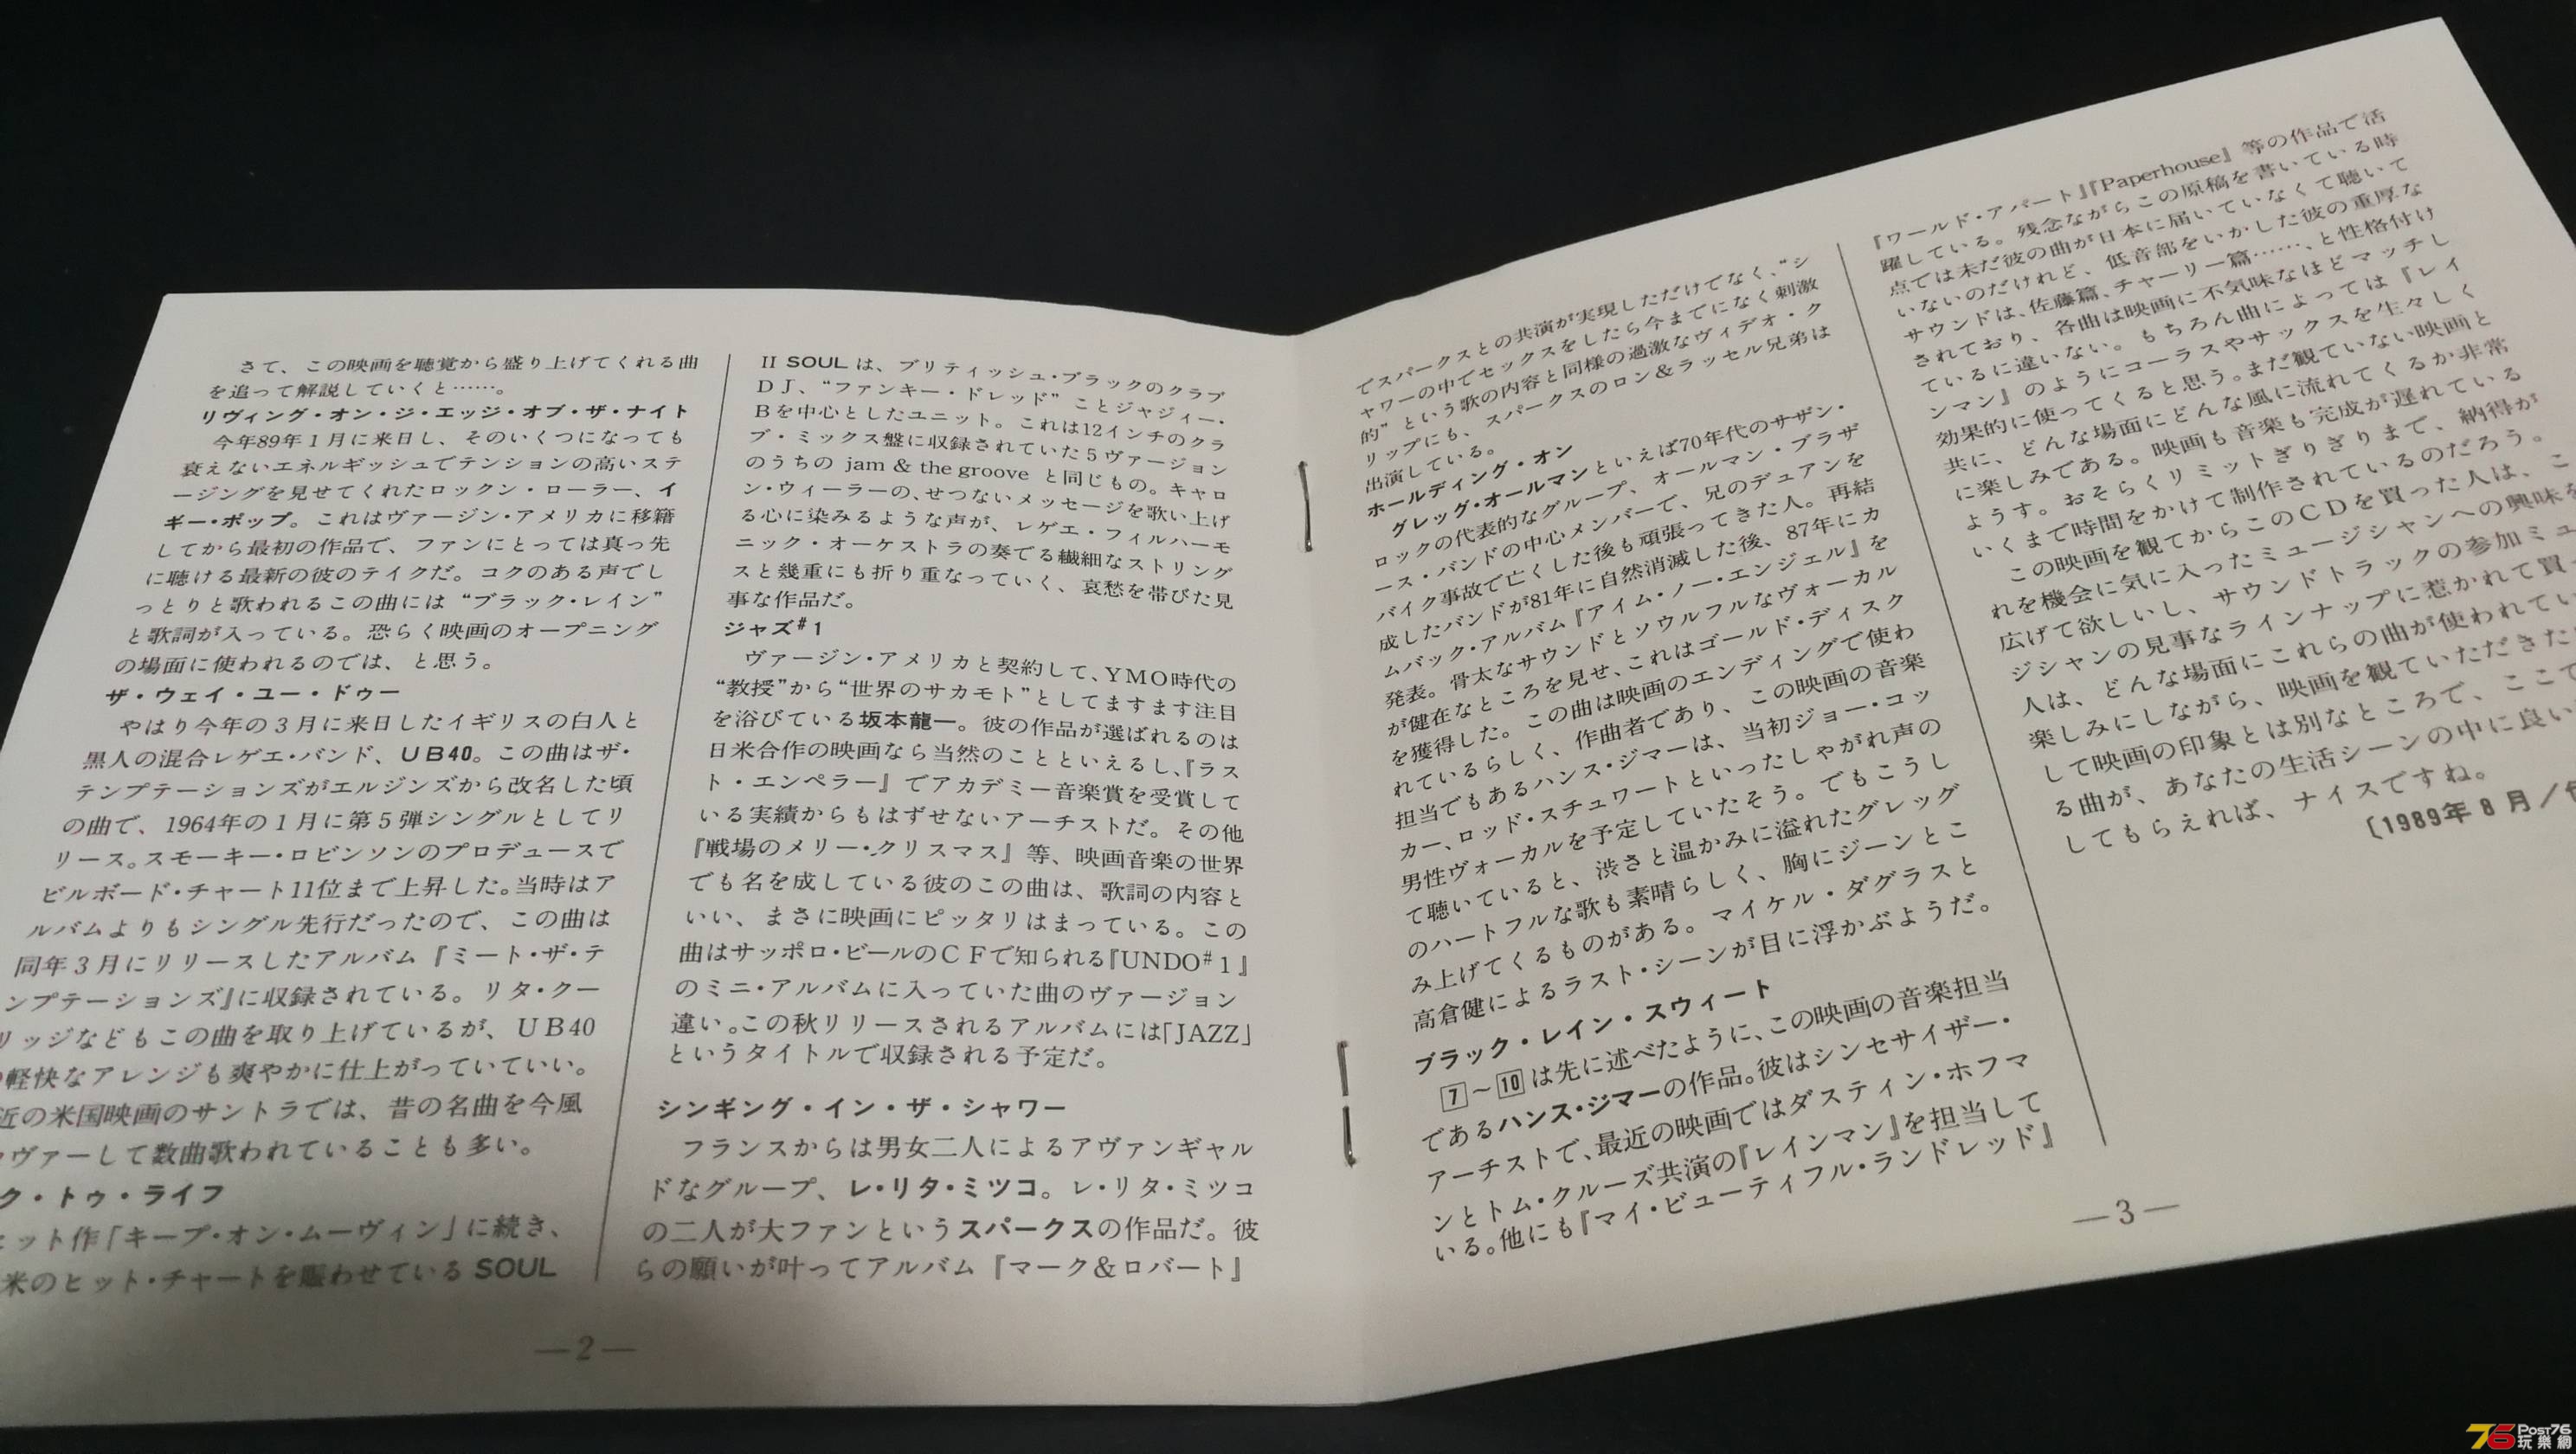 さて、この映画を聴覚から盛り上げてくれる曲
を追って解説していくと……。
リヴィング・オン・ジ・エッジ・オブ・ザ・ナイト
今年89年1月に来日し、そのいくつになっても
衰えないエネルギッシュでテンションの高いステ
ージングを見せてくれたロックン・ローラー、イ
ギー・ポップ。これはヴァージン・アメリカに移籍
してから最初の作品で、ファンにとっては真っ先
に聴ける最新の彼のテイクだ。コクのある声でし
っとりと歌われるこの曲には“ブラック・レイン”
と歌詞が入っている。恐らく映画のオープニング
の場面に使われるのでは、と思う。
ザ・ウェイ・ユー・ドゥー
やはり今年の3月に来日したイギリスの白人と
黒人の混合レゲエ・バンド、UB40。この曲はザ・
テンプテーションズがエルジンズから改名した頃
の曲で、1964年の1月に第5弾シングルとしてリ
リース。スモーキー・ロビンソンのプロデュースで
ビルボード・チャート11位まで上昇した。当時はア
ルバムよりもシングル先行だったので、この曲は
同年3月にリリースしたアルバム『ミート・ザ・テ
ンプテーションズ』に収録されている。リタ・クー
リッジなどもこの曲を取り上げているが、UB40
軽快なアレンジも爽やかに仕上がっていていい。
近の米国映画のサントラでは、昔の名曲を今風
ヴァーして数曲歌われていることも多い。
ク・トゥ・ライフ
ヒット作「キープ・オン・ムーヴィン」に続き、
米のヒット・チャートを賑わせているSOUL
II SOULは、ブリティッシュ・ブラックのクラブ
DJ、“ファンキー・ドレッド”ことジャジィー・
Bを中心としたユニット。これは12インチのクラ
ブ・ミックス盤に収録されていた5ヴァージョン
のうちの jam & the groove と同じもの。キャロ
ン・ウィーラーの、せつないメッセージを歌い上げ
る心に染みるような声が、レゲエ・フィルハーモ
ニック・オーケストラの奏でる繊細なストリング
スと幾重にも折り重なっていく、哀愁を帯びた見
事な作品だ。
ジャズ#1
ヴァージン・アメリカと契約して、YMO時代の
“教授”から“世界のサカモト”としてますます注目
を浴びている坂本龍一。彼の作品が選ばれるのは
日米合作の映画なら当然のことといえるし、『ラス
ト・エンペラー』でアカデミー音楽賞を受賞して
いる実績からもはずせないアーチストだ。その他
『戦場のメリー・クリスマス』等、映画音楽の世界
でも名を成している彼のこの曲は、歌詞の内容と
いい、まさに映画にピッタリはまっている。この
曲はサッポロ・ビールのCFで知られる『UNDO#1』
のミニ・アルバムに入っていた曲のヴァージョン
違い。この秋リリースされるアルバムには「JAZZ」
というタイトルで収録される予定だ。
シンギング・イン・ザ・シャワー
フランスからは男女二人によるアヴァンギャル
ドなグループ、レ・リタ・ミツコ。レ・リタ・ミツコ
の二人が大ファンというスパークスの作品だ。彼
らの願いが叶ってアルバム『マーク&ロバート』
—2—
でスパークスとの共演が実現しただけでなく、“シ
ャワーの中でセックスをしたら今までになく刺激
的”という歌の内容と同様の過激なヴィデオ・ク
リップにも、スパークスのロン&ラッセル兄弟は
出演している。
ホールディング・オン
グレッグ・オールマンといえば70年代のサザン・
ロックの代表的なグループ、オールマン・ブラザ
ース・バンドの中心メンバーで、兄のデュアンを
バイク事故で亡くした後も頑張ってきた人。再結
成したバンドが81年に自然消滅した後、87年にカ
ムバック・アルバム『アイム・ノー・エンジェル』を
発表。骨太なサウンドとソウルフルなヴォーカル
が健在なところを見せ、これはゴールド・ディスク
を獲得した。この曲は映画のエンディングで使わ
れているらしく、作曲者であり、この映画の音楽
担当でもあるハンス・ジマーは、当初ジョー・コッ
カー、ロッド・スチュワートといったしゃがれ声の
男性ヴォーカルを予定していたそう。でもこうし
て聴いていると、渋さと温かみに溢れたグレッグ
のハートフルな歌も素晴らしく、胸にジーンとこ
み上げてくるものがある。マイケル・ダグラスと
高倉健によるラスト・シーンが目に浮かぶようだ。
ブラック・レイン・スウィート
7~10は先に述べたように、この映画の音楽担当
であるハンス・ジマーの作品。彼はシンセサイザー・
アーチストで、最近の映画ではダスティン・ホフマ
ンとトム・クルーズ共演の『レインマン』を担当して
いる。他にも『マイ・ビューティフル・ランドレッド』
『ワールド・アパート』『Paperhouse』等の作品で活
躍している。残念ながらこの原稿を書いている時
点では未だ彼の曲が日本に届いていなくて聴いて
いないのだけれど、低音部をいかした彼の重厚な
サウンドは、佐藤篇、チャーリー篇……、と性格付け
されており、各曲は映画に不気味なほどマッチし
ているに違いない。もちろん曲によっては『レイ
ンマン』のようにコーラスやサックスを生々しく
効果的に使ってくると思う。まだ観ていない映画と
共に、どんな場面にどんな風に流れてくるか非常
に楽しみである。映画も音楽も完成が遅れている
ようす。おそらくリミットぎりぎりまで、納得が
いくまで時間をかけて制作されているのだろう。
この映画を観てからこのCDを買った人は、こ
れを機会に気に入ったミュージシャンへの興味を
広げて欲しいし、サウンドトラックの参加ミュ
ジシャンの見事なラインナップに惹かれて買っ
人は、どんな場面にこれらの曲が使われてい
楽しみにしながら、映画を観ていただきた
して映画の印象とは別なところで、ここで
る曲が、あなたの生活シーンの中に良い
してもらえれば、ナイスですね。
〔1989年8月/
—3—
76 Post76
玩樂網